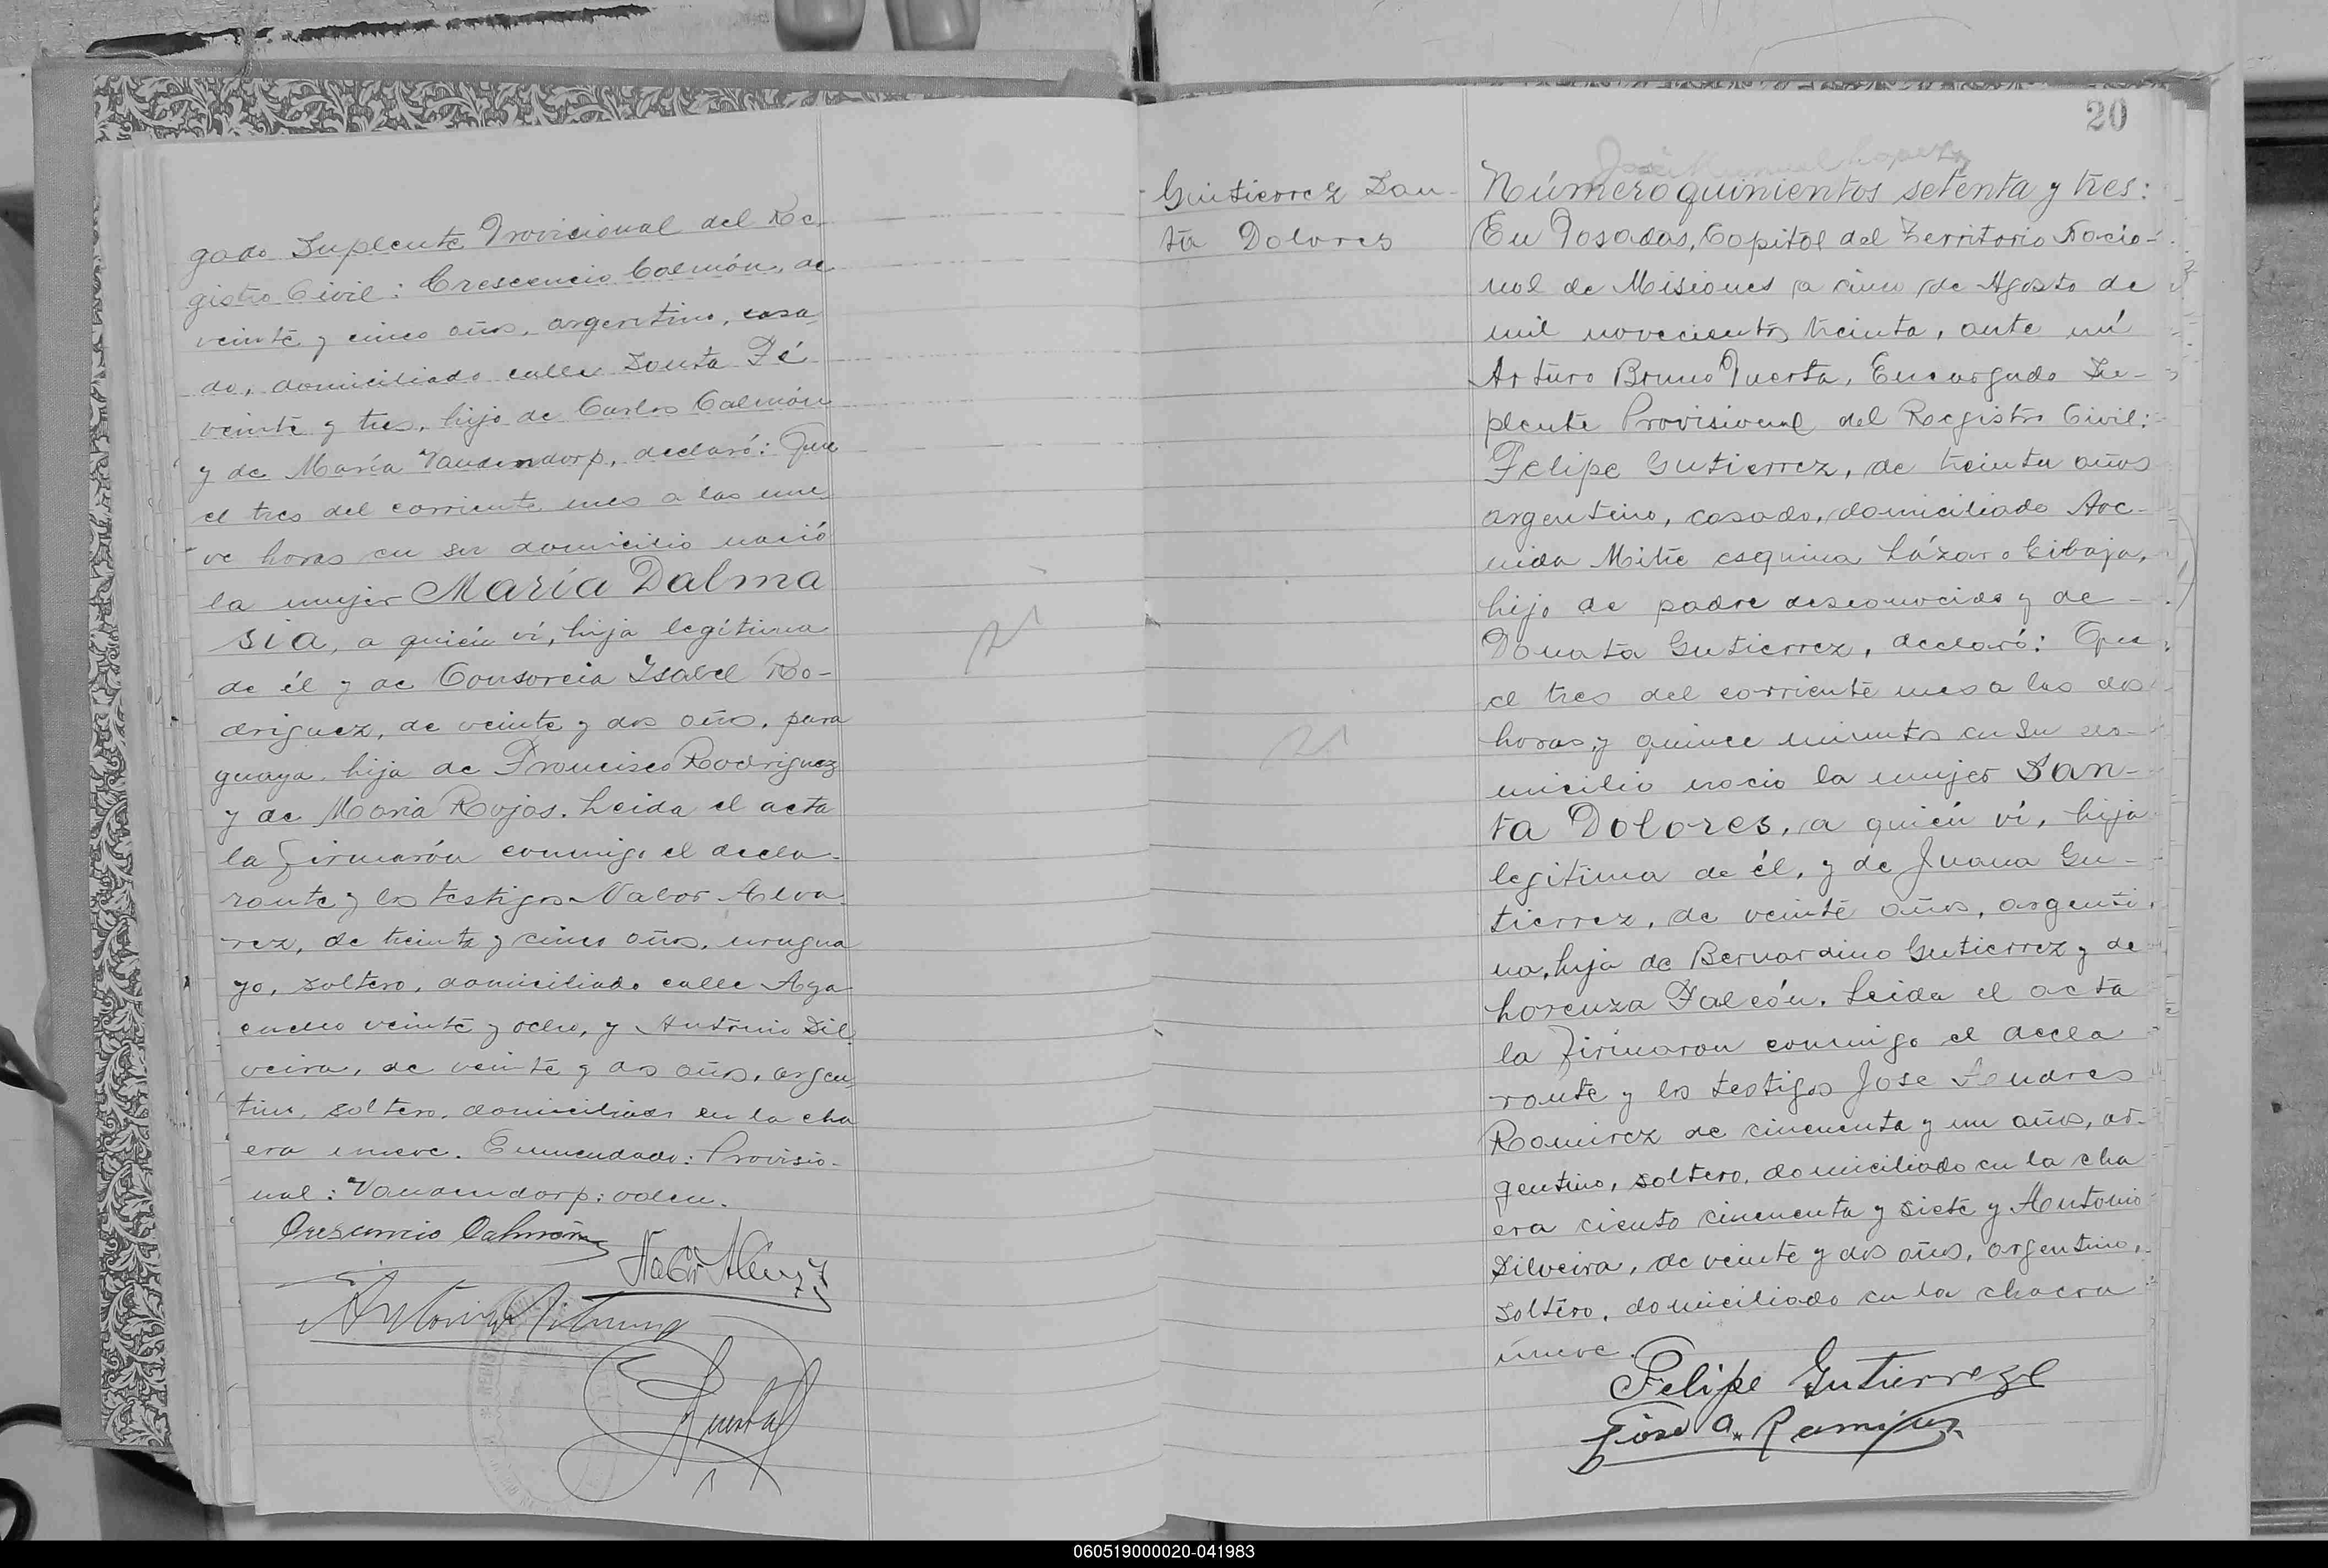 gado Suplente Provicional del Re-
gistro Civil: Crescencio Calmón, de
veinte y cinco años, argentino, casa
do, domiciliado calle Santa Fé
veinte y tres, hijo de Carlos Calmón
y de María Vaudendorp, declaró: Que
el tres del corriente mes a las nue
ve horas en su domicilio nació
la mujer María Dalma
sia, a quién ví, hija legítima
de él y de Consorcia Isabel Ro-
driguez, de veinte y dos años, para
guaya, hija de Francisco Rodriguez
y de Maria Rojas. Leida el acta
la firmarón conmigo el decla-
rante y los testigos Nabor Alva
rez, de treinta y cinco años, urugua
yo, soltero, domiciliado calle Aya
cucho veinte y ocho, y Antonio Sil
veira, de veinte y dos años, argen
tino, soltero, domiciliado en la cha
cra nueve. Enmendado: Provisio-
nal: Vauden­dorp: valen.
Crescencio Calmón
Nabor Alvarez
Antonio Silveira
Puerta
20
José Manuel Lopez
Gutierrez San-
ta Dolores
Número quinientos setenta y tres:
En Posadas, Capital del Territorio Nacio-
nal de Misiones a cinco de Agosto de
mil novecientos treinta, ante mí
Arturo Bruno Puerta, Encargado Su-
plente Provisional del Registro Civil:
Felipe Gutierrez, de treinta años
argentino, casado, domiciliado Ave-
nida Mitre esquina Lázaro Gibaja,
hijo de padre desconocido y de
Donata Gutierrez, declaró: Que
el tres del corriente mes a las dos
horas y quince minutos en su do-
micilio nacio la mujer San-
ta Dolores, a quién ví, hija
legitima de él, y de Juana Gu-
tierrez, de veinte años, argenti
na, hija de Bernardino Gutierrez y de
Lorenza Falcón. Leida el acta
la firmaron conmigo el decla
rante y los testigos Jose Andres
Ramirez de cincuenta y un años, ar-
gentino, soltero, domiciliado en la cha
cra ciento cincuenta y siete y Antonio
Silveira, de veinte y dos años, argentino,
soltero, domiciliado en la chacra
nueve.
Felipe Gutierrez
Jose A. Ramirez
060519000020-041983